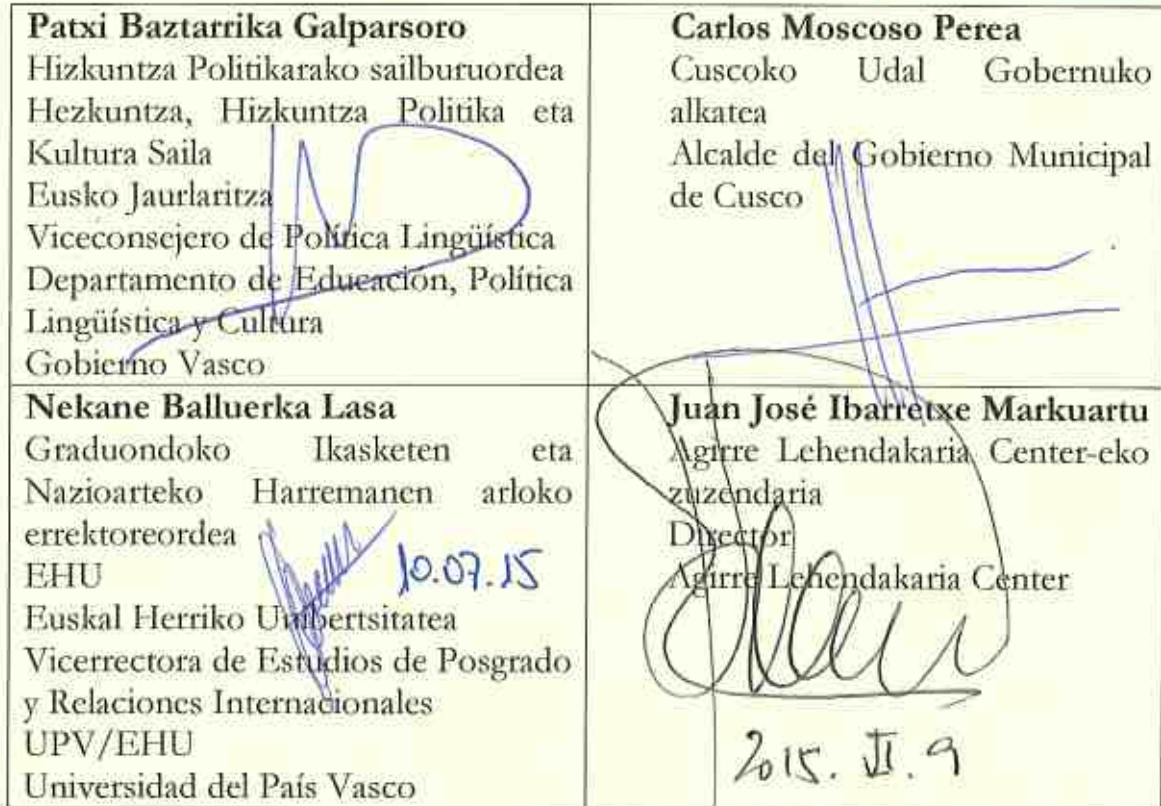 Patxi Baztarrika Galparsoro
Hizkuntza Politikarako sailburuordea
Hezkuntza, Hizkuntza Politika eta
Kultura Saila
Eusko Jaurlaritza
Viceconsejero de Política Lingüística
Departamento de Educación, Política
Lingüística y Cultura
Gobierno Vasco
Carlos Moscoso Perea
Cuscoko Udal Gobernuko
alkatea
Alcalde del Gobierno Municipal
de Cusco
Nekane Balluerka Lasa
Graduondoko Ikasketen eta
Nazioarteko Harremanen arloko
errektoreordea
EHU
10.07.15
Euskal Herriko Unibertsitatea
Vicerrectora de Estudios de Posgrado
y Relaciones Internacionales
UPV/EHU
Universidad del País Vasco
Juan José Ibarretxe Markuartu
Agirre Lehendakaria Center-eko
zuzendaria
Director
Agirre Lehendakaria Center
2015. VI. 9